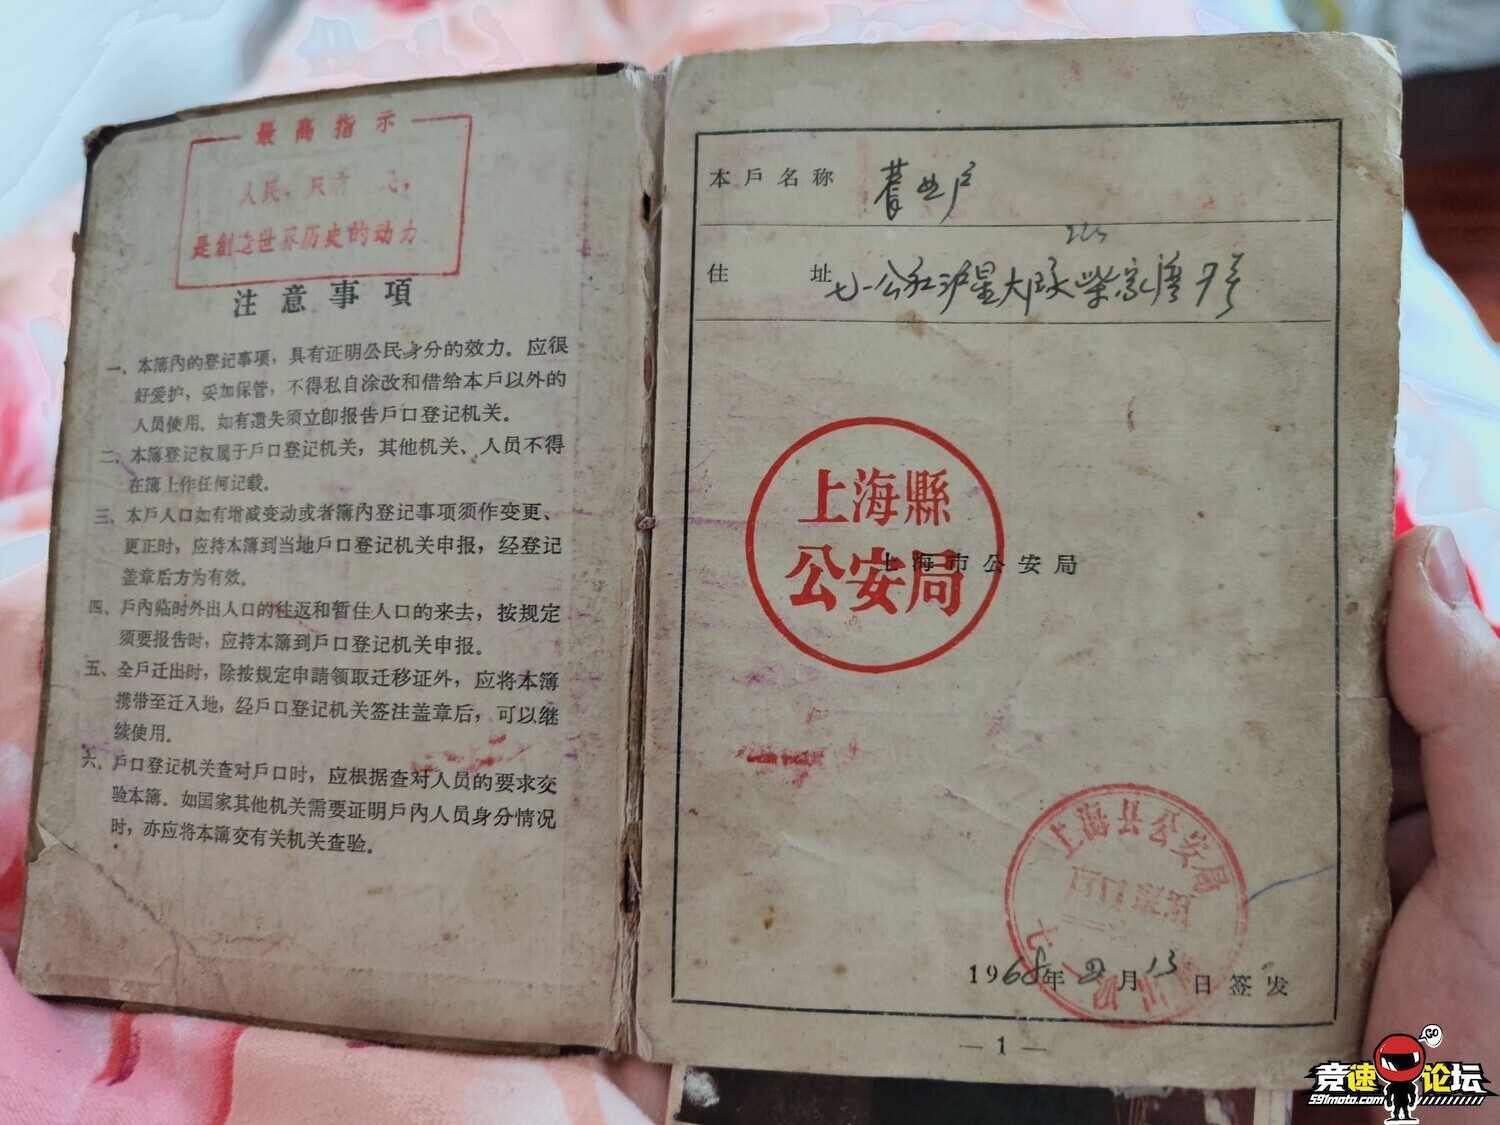 最高指示
人民，只有人民，
是創造世界历史的动力
注意事項
一、本簿內的登记事項，具有证明公民身分的效力。应很
好爱护，妥加保管，不得私自涂改和借给本戶以外的
人員使用。如有遺失须立卽报告戶口登记机关。
二、本簿登记权属于戶口登记机关，其他机关、人员不得
在簿上作任何记载。
三、本戶人口如有增减变动或者簿內登记事项须作变更、
更正时，应持本簿到当地戶口登记机关申报，经登记
盖章后方为有效。
四、戶內临时外出人口的往返和暂住人口的来去，按规定
须要报告时，应持本簿到戶口登记机关申报。
五、全戶迁出时，除按规定申請領取迁移证外，应将本簿
携带至迁入地，经戶口登记机关签注盖章后，可以继
续使用。
六、戶口登记机关查对戶口时，应根据查对人员的要求交
验本簿。如国家其他机关需要证明戶內人员身分情况
时，亦应将本簿交有关机关查验。
本戶名称 農业户
住址 七一公社沪星大队柴家湾9号
上海縣
公安局
上海市公安局
上海县公安局
1968年2月13日签发
— 1 —
GO
竞速论坛
591moto.com